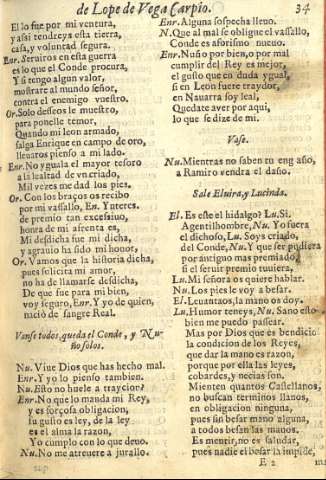 de Lope de Vega Carpio. 34
El lo fue por mi ventura,
y assi tendreys esta tierra,
casa, y voluntad segura.
Enr. Seruiros en esta guerra
es lo que el Conde procura,
Y si tengo algun valor,
mostrare al mundo señor,
contra el enemigo vuestro.
Or. Solo desseos le muestro,
para ponelle temor,
Quando mi leon armado,
salga Enrique en campo de oro,
lleuaros pienso a mi lado.
Enr. No yguala el mayor tesoro
a la lealtad de vn criado,
Mil vezes me dad los pies.
Or. Con los braços os recibo
por mi vassallo, En. Y interes.
de premio tan excessiuo,
honra de mi afrenta es,
Mi desdicha fue mi dicha,
y agrauio ha sido mi honor,
Or. Vamos que la historia dicha,
pues solicita mi amor,
no ha de llamarse desdicha,
De que fue para mi bien,
voy seguro, Enr. Y yo de quien,
nació de sangre Real.
Vanse todos, queda el Conde, y Nu-
ño solos.
Nu. Viue Dios que has hecho mal.
Enr. Y yo lo pienso tambien.
Nu. Esto no huele a trayciõr?
Enr. No que lo manda mi Rey,
y es forçosa obligacion,
su gusto es ley, de la ley
es el alma la razon,
Yo cumplo con lo que deuo.
Nu. No me atreuere a jurallo.
Enr. Alguna sospecha lleuo.
N. Que al mal se obligue el vassallo,
Conde es aforismo nueuo.
Enr. Nuño por bien, o por mal
cumplir del Rey es mejor,
el gusto que en duda ygual,
si en Leon fuere traydor,
en Nauarra soy leal,
Quedate aver por aqui,
lo que se dize de mi.
Vase.
Nu. Mientras no saben tu engaño,
a Ramiro vendra el daño.
Sale Eluira, y Lucinda.
El. Es este el hidalgo? Lu. Si.
Agentilhombre, Nu. Yo fuera
el dichoso, Lu. Soys criado,
del Conde, Nu. Y que ser pudiera
por antiguo mas premiado,
si el seruir premio tuuiera,
Lu. Mi señora os quiere hablar.
Nu. Los pies le voy a besar.
El. Leuantaos, la mano os doy.
Lu. Humor teneys, Nu. Sano esto-
bien me puedo passear.
Mas por Dios que es bendicio
la condicion de los Reyes,
que dar la mano es razon,
porque por ella las leyes,
cobardes, y necias son.
Mienten quantos Castellanos,
no buscan terminos llanos,
en obligacion ninguna,
pues sin besar mano alguna,
a todos besan las manos.
Es mentir, no es saludar,
pues nadie el besar la impide,
E 2